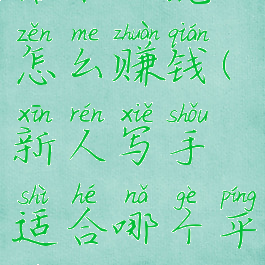 zěn me zhuàn qián
怎么赚钱(
xīn rén xiě shǒu
新人写手
shì hé nǎ gè píng
适合哪个平